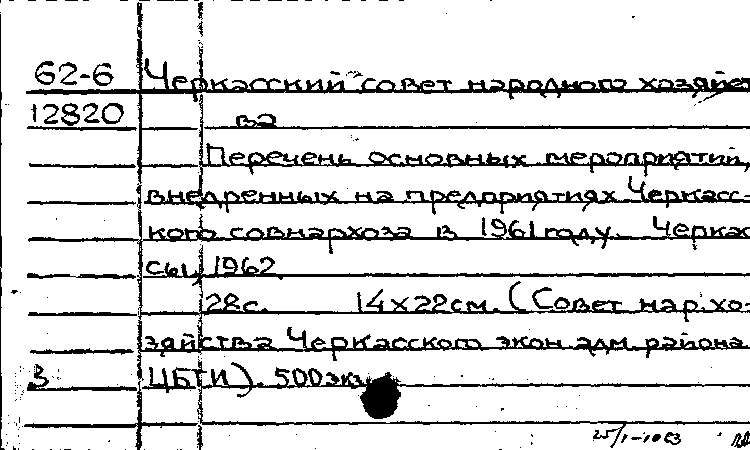 62-6 Черкасский совет народного хозяйст
12820 ва
Перечень основных мероприятий,
внедренных на предприятиях Черкасс-
кого совнархоза в 1961 году. Черкас-
сы, 1962.
28с. 14х22см. (Совет нар. хо-
зяйства Черкасского экон. адм. района
В ЦБТИ). 500экз.